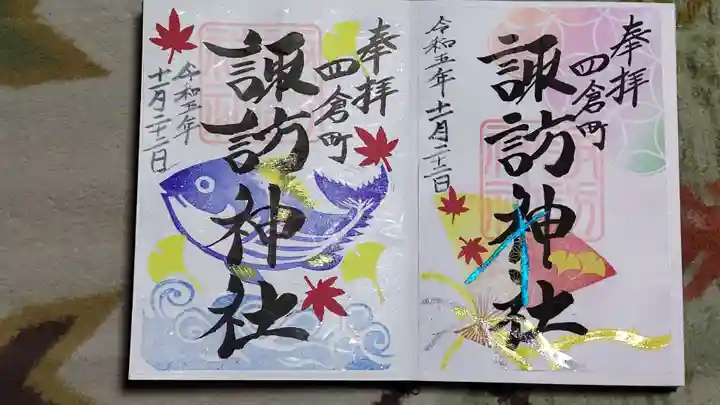 奉拝
四倉町
諏訪神社
令和五年
十一月二十三日
奉拝
四倉町
諏訪神社
令和五年十一月二十三日